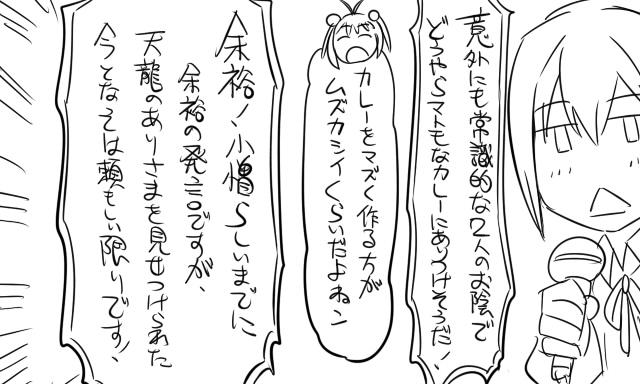 意外にも常識的な2人のお陰で
どうやらマトモなカレーにありつけそうだ!
カレーをマズく作る方が
ムズカシイくらいだよねン
余裕!小憎らしいまでに
余裕の発言ですが、
天龍のありさまを見せつけられた
今となっては頼もしい限りです!